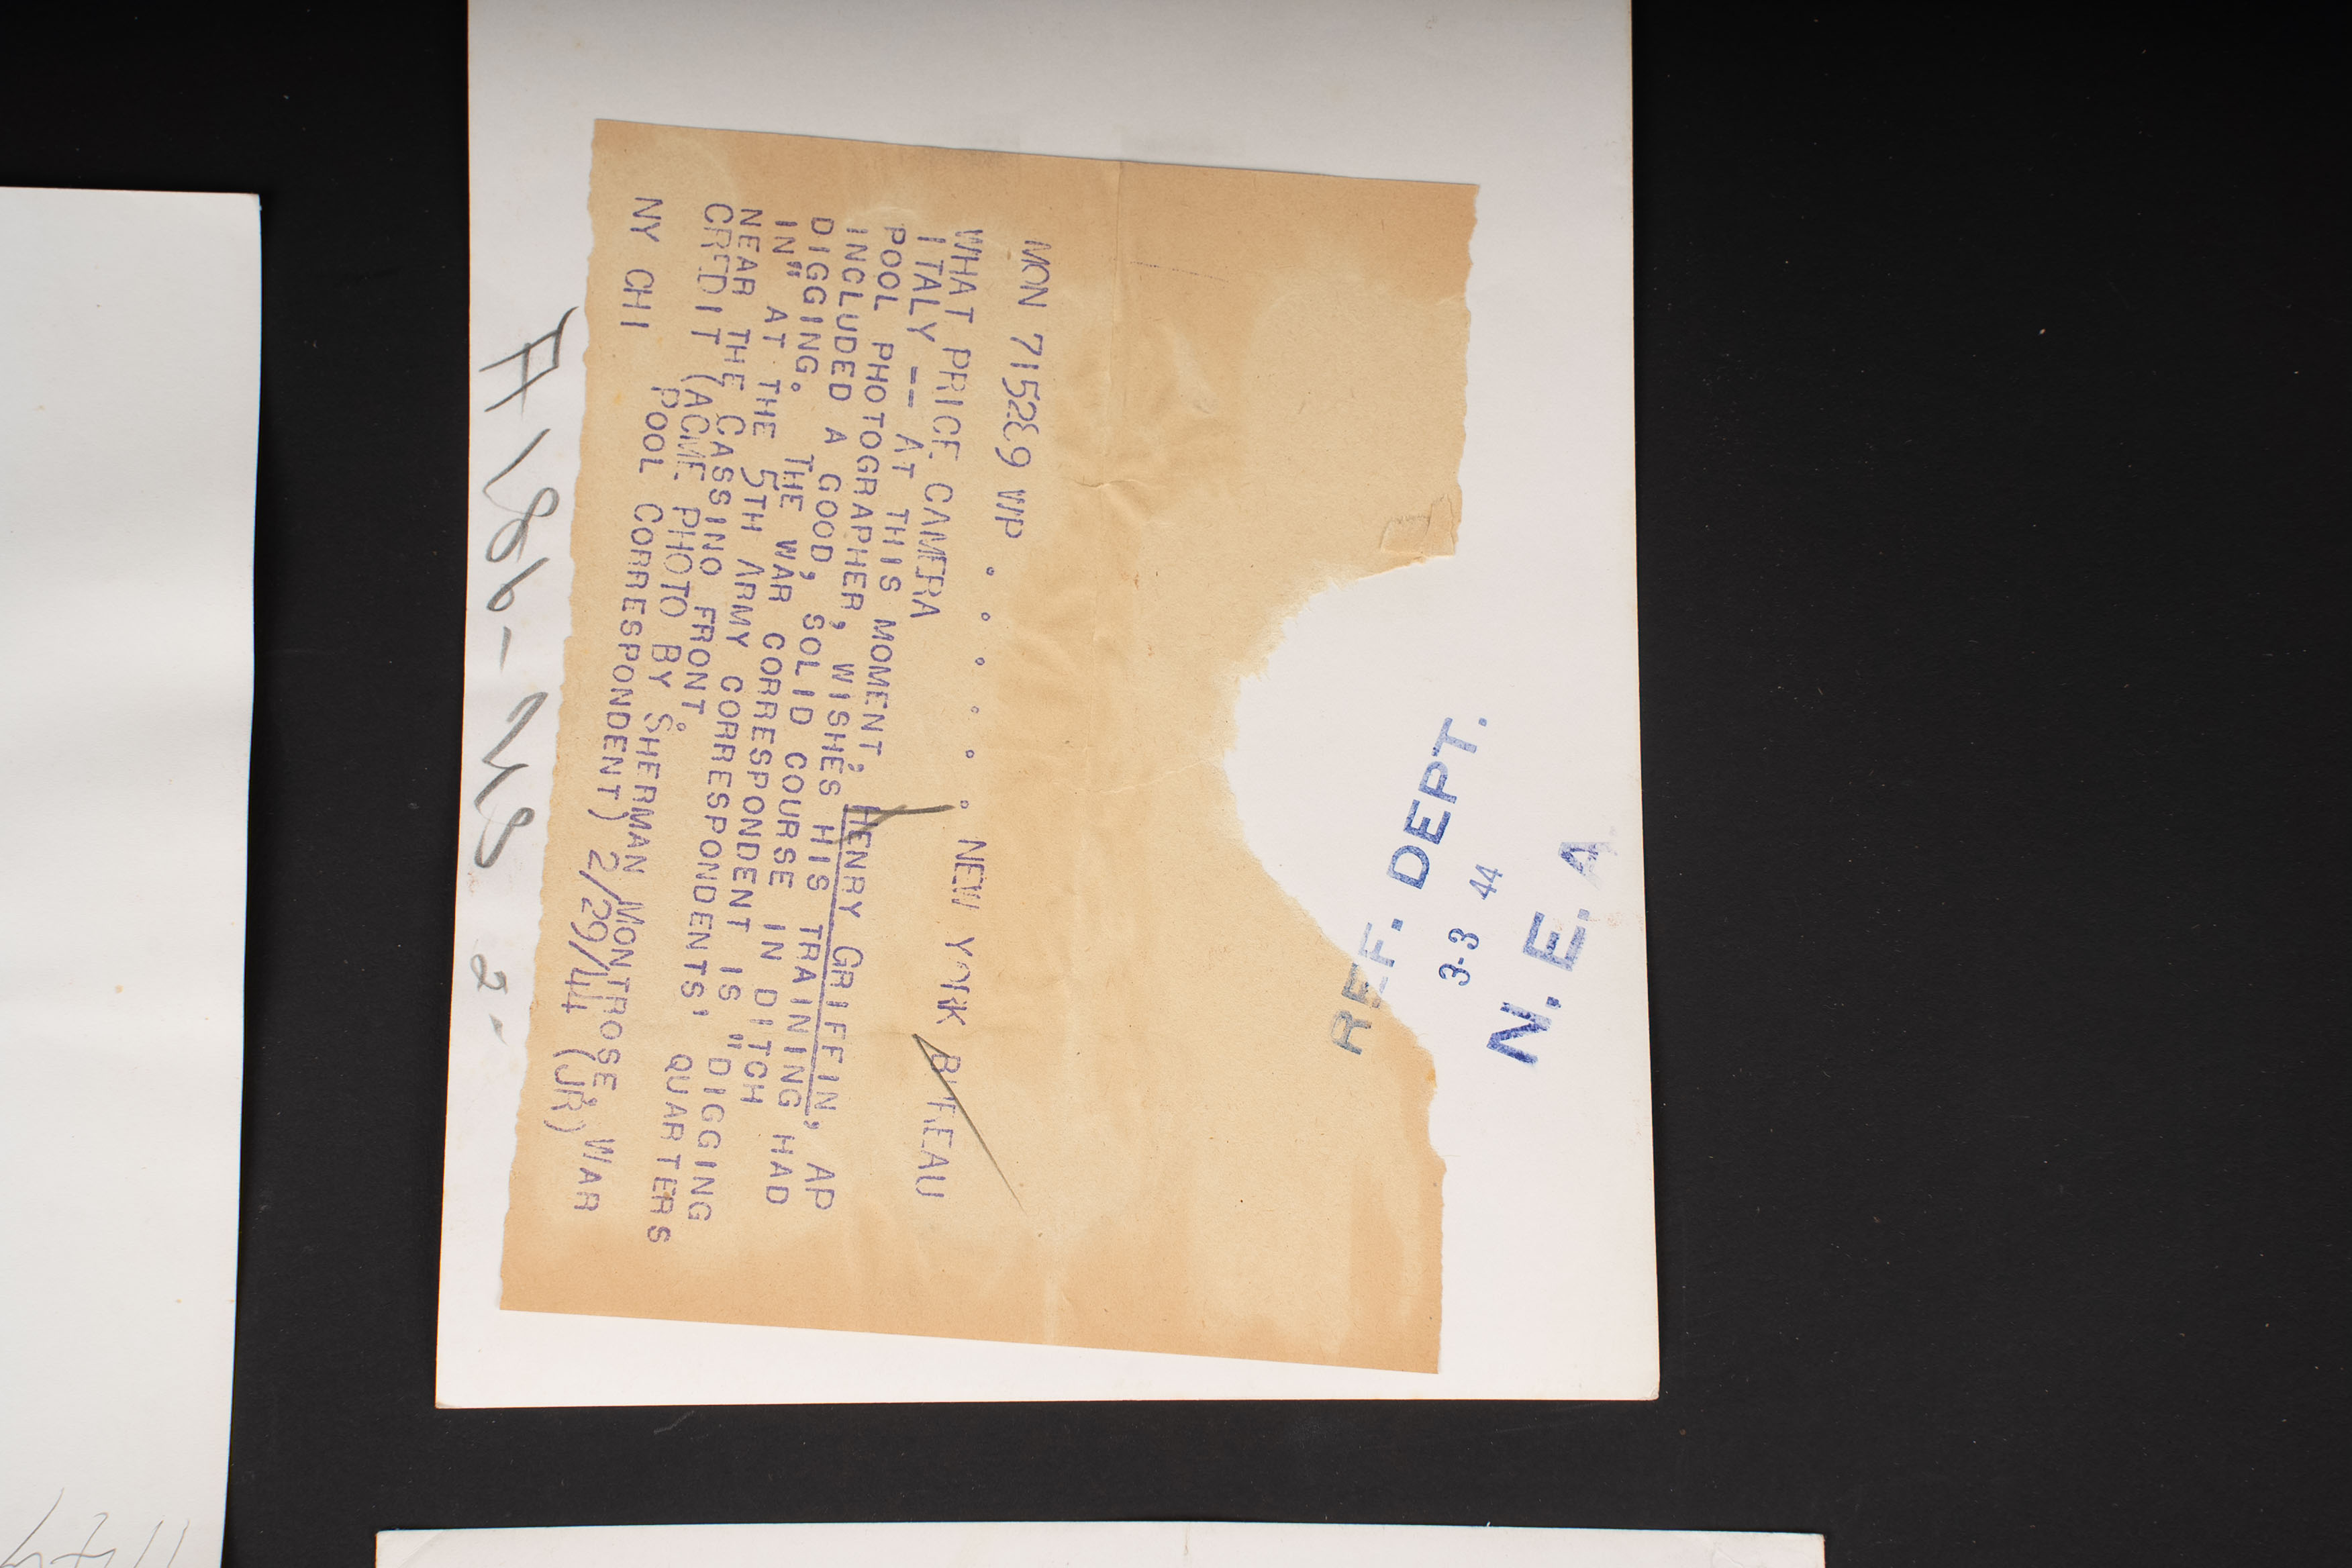 REF. DEPT.
3-3 44
N. E. A
MCN 715289 WP . . . . . . NEW YORK BUREAU
WHAT PRICE CAMERA
ITALY -- AT THIS MOMENT, HENRY GRIFFIN, AP
POOL PHOTOGRAPHER, WISHES HIS TRAINING HAD
INCLUDED A GOOD, SOLID COURSE IN DITCH
DIGGING. THE WAR CORRESPONDENT IS "DIGGING
IN" AT THE 5TH ARMY CORRESPONDENTS, QUARTERS
NEAR THE CASSINO FRONT.
CREDIT (ACME PHOTO BY SHERMAN MONTROSE WAR
POOL CORRESPONDENT) 2/29/44 (JR)
NY CHI